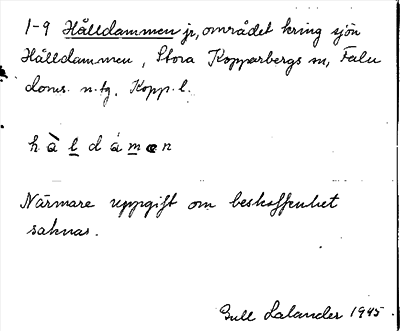 1-9 Hålldammen jr, området kring sjön
Hålldammen, Stora Kopparbergs sn, Falu
doms. n. tg. Kopp. l.
h à l d á m e n
Närmare uppgift om beskaffenhet
saknas.
Gull Lalander 1945.